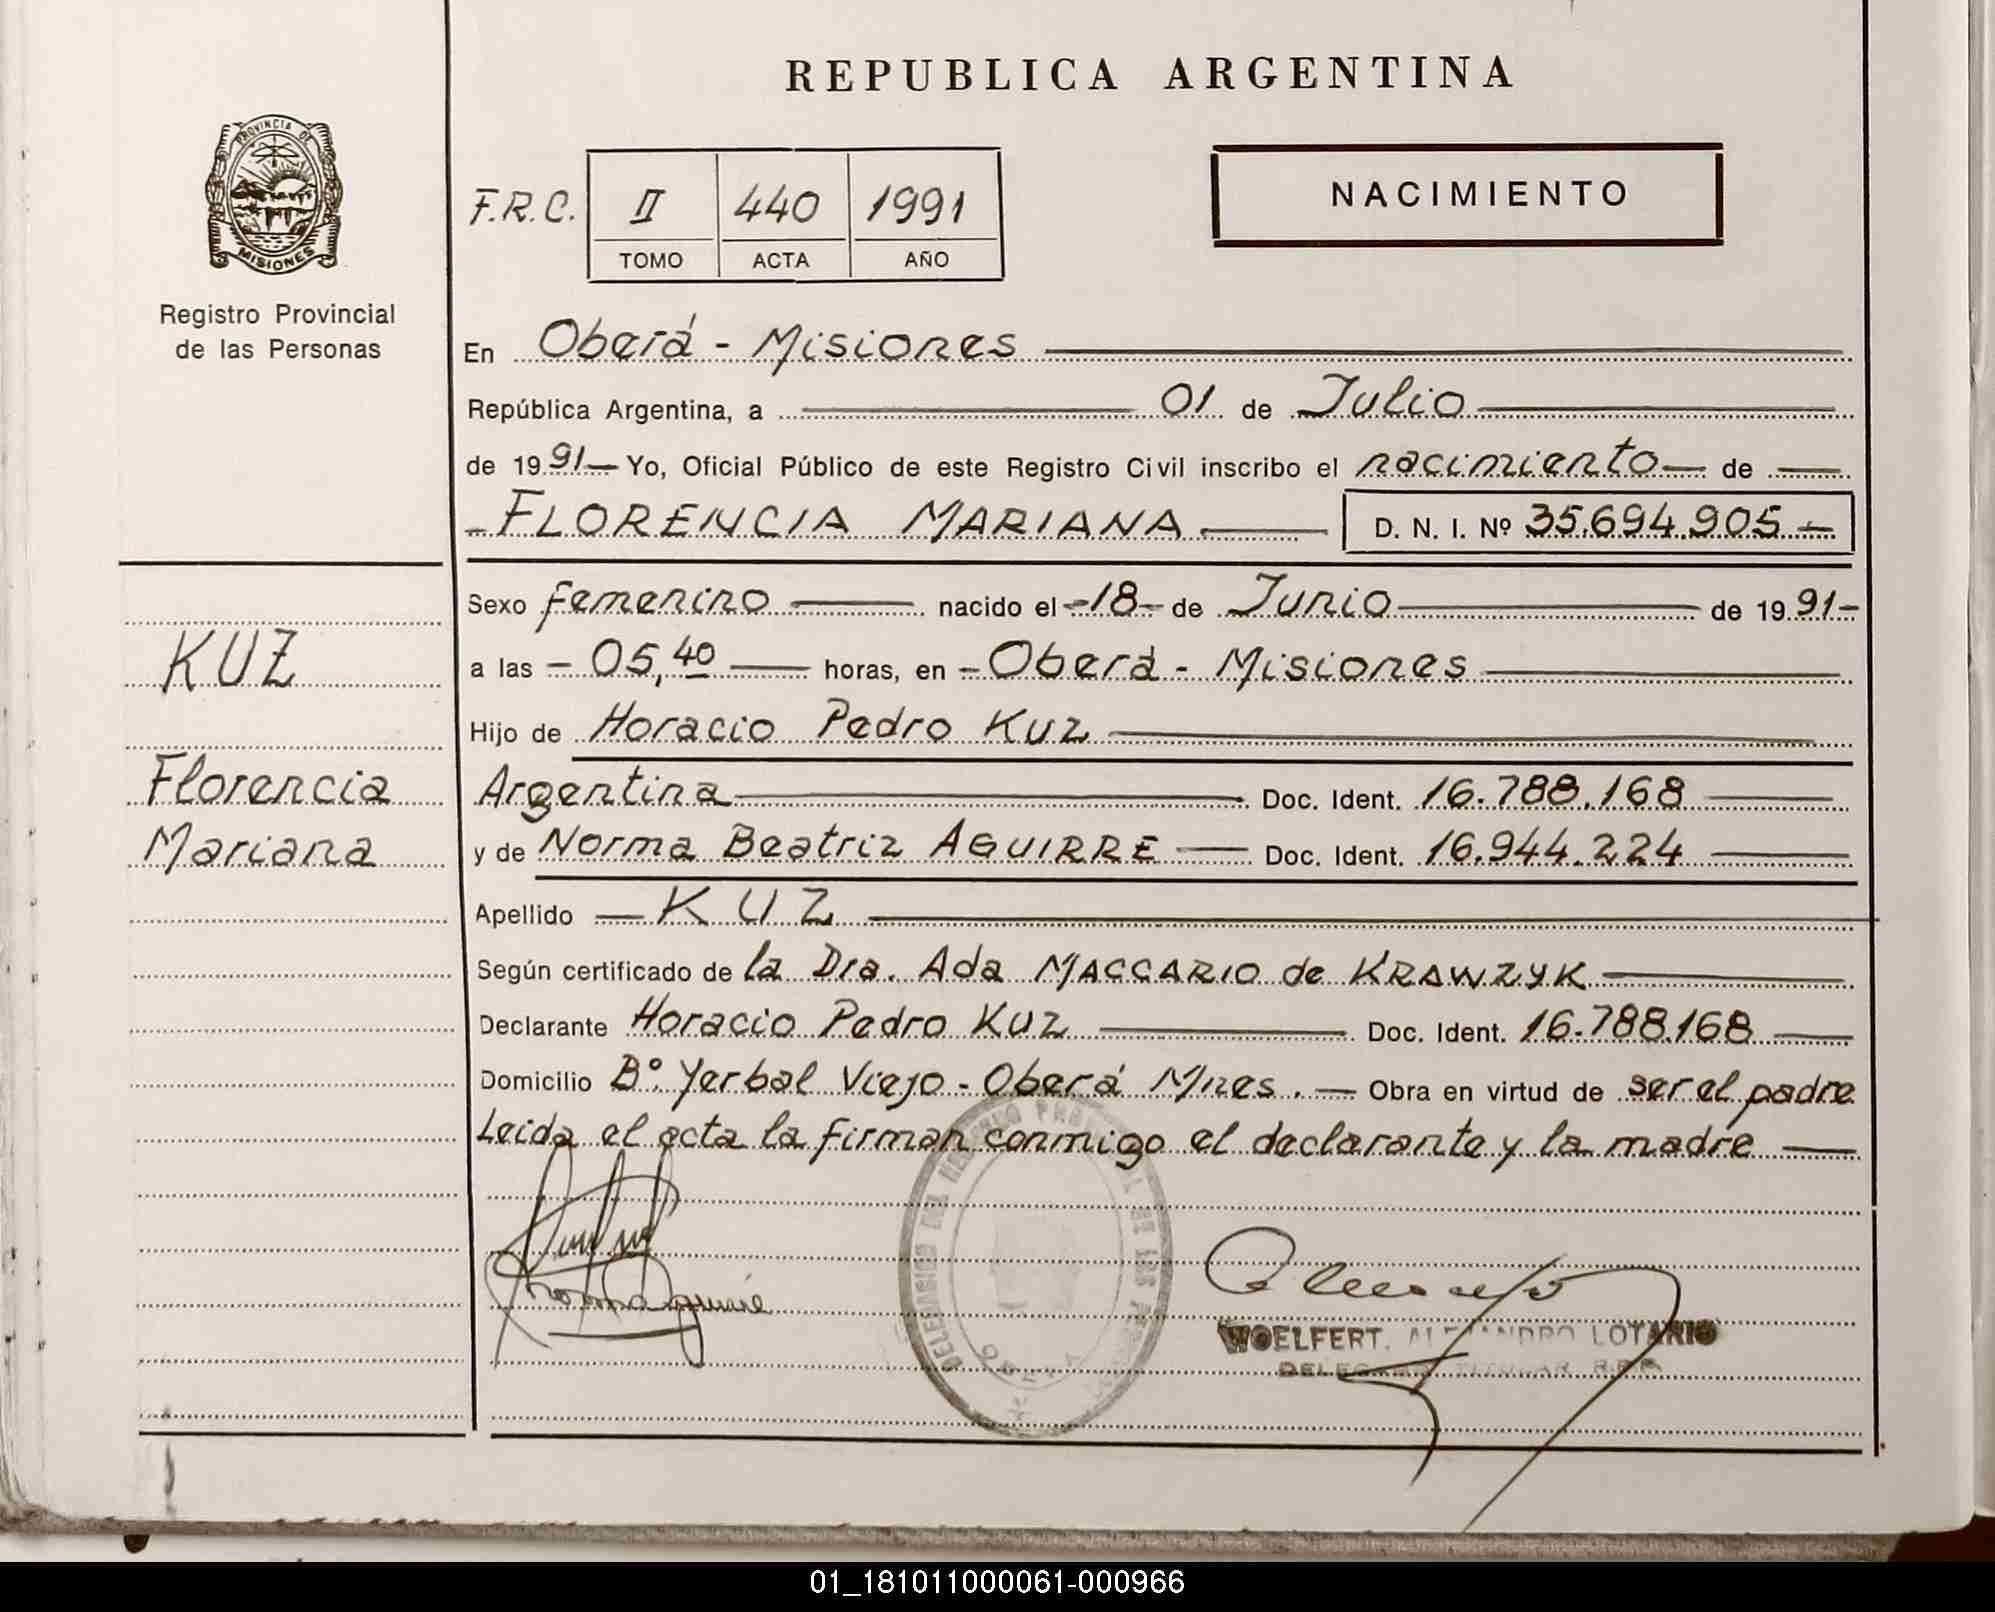 REPUBLICA ARGENTINA
PROVINCIA DE
MISIONES
Registro Provincial
de las Personas
F.R.C. II 440 1991
TOMO ACTA AÑO
NACIMIENTO
En Oberá - Misiones
República Argentina, a 01 de Julio
de 1991 Yo, Oficial Público de este Registro Civil inscribo el nacimiento de
FLORENCIA MARIANA D. N. I. Nº 35.694.905
Sexo femenino nacido el 18 de Junio de 1991
a las 05,40 horas, en Oberá - Misiones
Hijo de Horacio Pedro Kuz
Argentina Doc. Ident. 16.788.168
y de Norma Beatriz AGUIRRE Doc. Ident. 16.944.224
Apellido KUZ
Según certificado de la Dra. Ada MACCARIO de KRAWZYK
Declarante Horacio Pedro Kuz Doc. Ident. 16.788.168
Domicilio Bº. Yerbal Viejo - Oberá Mnes. Obra en virtud de ser el padre
Leida el acta la firman conmigo el declarante y la madre
KUZ
Florencia
Mariana
WOELFERT, ALEJANDRO LOTARIO
01_181011000061-000966